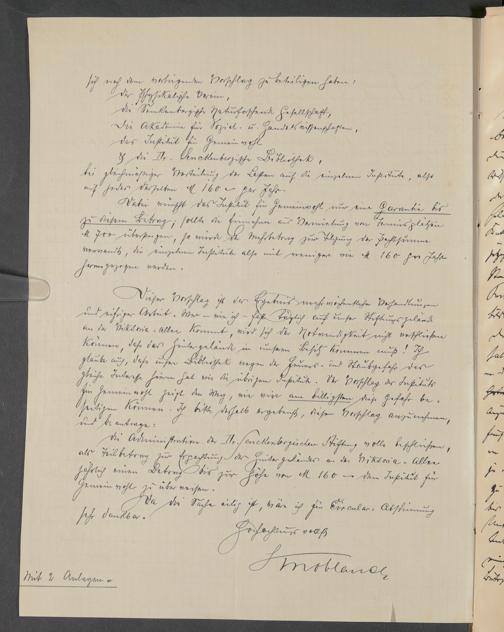 sich nach dem vorliegenden Vorschlag zu beteiligen haben:
Der Physikalische Verein,
die Senckenbergische Naturforschende Gesellschaft,
Die Akademie für Sozial- u. Handelswissenschaften,
das Institut für Gemeinwohl
& die Dr. Senckenbergische Bibliothek,
bei gleichmässiger Verteilung der Lasten auf die einzelnen Institute, also
auf jedes derselben M 160 – per Jahr.
Dabei wünscht das Institut für Gemeinwohl nur eine Garantie bis
zu diesem Betrag; sollte die Einnahme aus Vermietung von Tennisplätzen
M 700 – übersteigen, so würde der Mehrbetrag zur Tilgung der
verwandt, die einzelnen Institute also mit weniger wie M 160 per Jahr
herangezogen werden.
Dieser Vorschlag ist das Ergebnis mehrwöchentlicher Verhandlungen
und eifriger Arbeit. Wer – wie ich – fast täglich auf unser Stiftungsgelände
an der Viktoria-Allee kommt, wird sich der Notwendigkeit nicht verschliessen
können, dass das Hintergelände in unseren Besitz kommen muss! Ich
glaube auch, dass unsere Bibliothek wegen der Feuers- und Staubgefahr das
gleiche Interesse hieran hat wie die übrigen Institute. Der Vorschlag des Instituts
für Gemeinwohl zeigt den Weg, wie wir am billigsten diese Gefahr be-
seitigen können. Ich bitte deshalb ergebenst, diesen Vorschlag anzunehmen,
und beantrage:
die Administration der Dr. Senckenbergischen Stiftung wolle beschliessen,
als Teilbetrag zur Erpachtung des Hintergeländes an der Viktoria-Allee
jährlich einen Betrag bis zur Höhe von M 160 – dem Institut für
Gemeinwohl zu überweisen.
Da die Sache eilig ist, wäre ich für Circular-Abstimmung
sehr dankbar.
Hochachtungsvoll
Knoblauch
Mit 2 Anlagen.